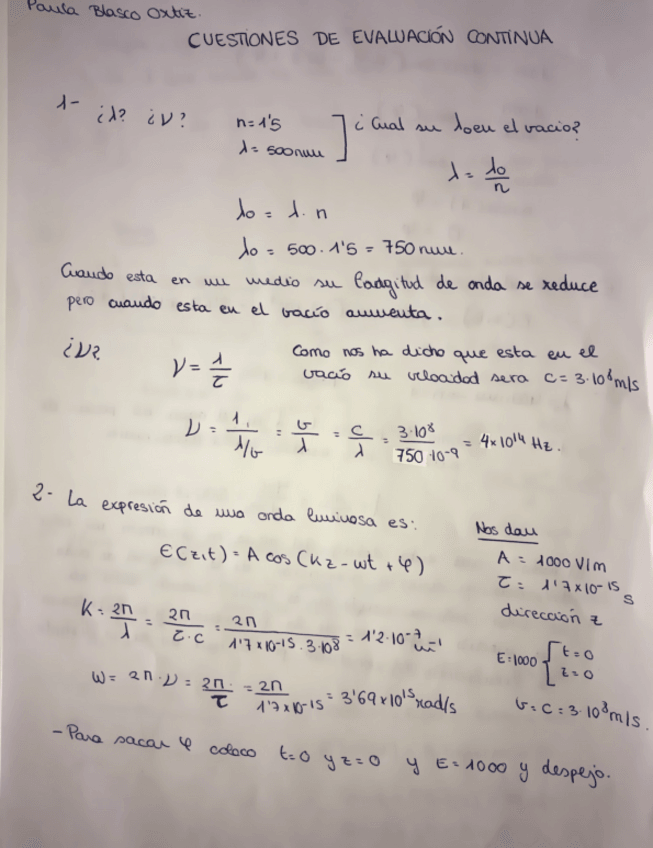 Paula Blasco Ortiz.
CUESTIONES DE EVALUACIÓN CONTINUA
1- ¿λ? ¿ν? n=1'5 ¿Cual su λo en el vacio?
λ= 500nm
λ = λo/n
λo = λ · n
λo = 500 · 1'5 = 750 nm.
Cuando esta en un medio su longitud de onda se reduce
pero cuando esta en el vacío aumenta.
¿ν? ν = 1/τ Como nos ha dicho que esta en el
vacío su velocidad sera c = 3·10⁸ m/s
ν = 1/(λ/v) = v/λ = c/λ = 3·10⁸/750·10⁻⁹ = 4×10¹⁴ Hz.
2- La expresión de una onda luminosa es: Nos dan
E(z,t) = A cos (Kz - wt + φ) A = 1000 V/m
τ = 1'7×10⁻¹⁵ s
dirección z
K = 2π/λ = 2π/τ·c = 2π/1'7×10⁻¹⁵ · 3·10⁸ = 1'2·10⁻⁷ m⁻¹
E=1000 { t=0
z=0
w = 2π·ν = 2π/τ = 2π/1'7×10⁻¹⁵ = 3'69×10¹⁵ rad/s
v=c=3·10⁸ m/s.
- Para sacar φ coloco t=0 y z=0 y E=1000 y despejo.